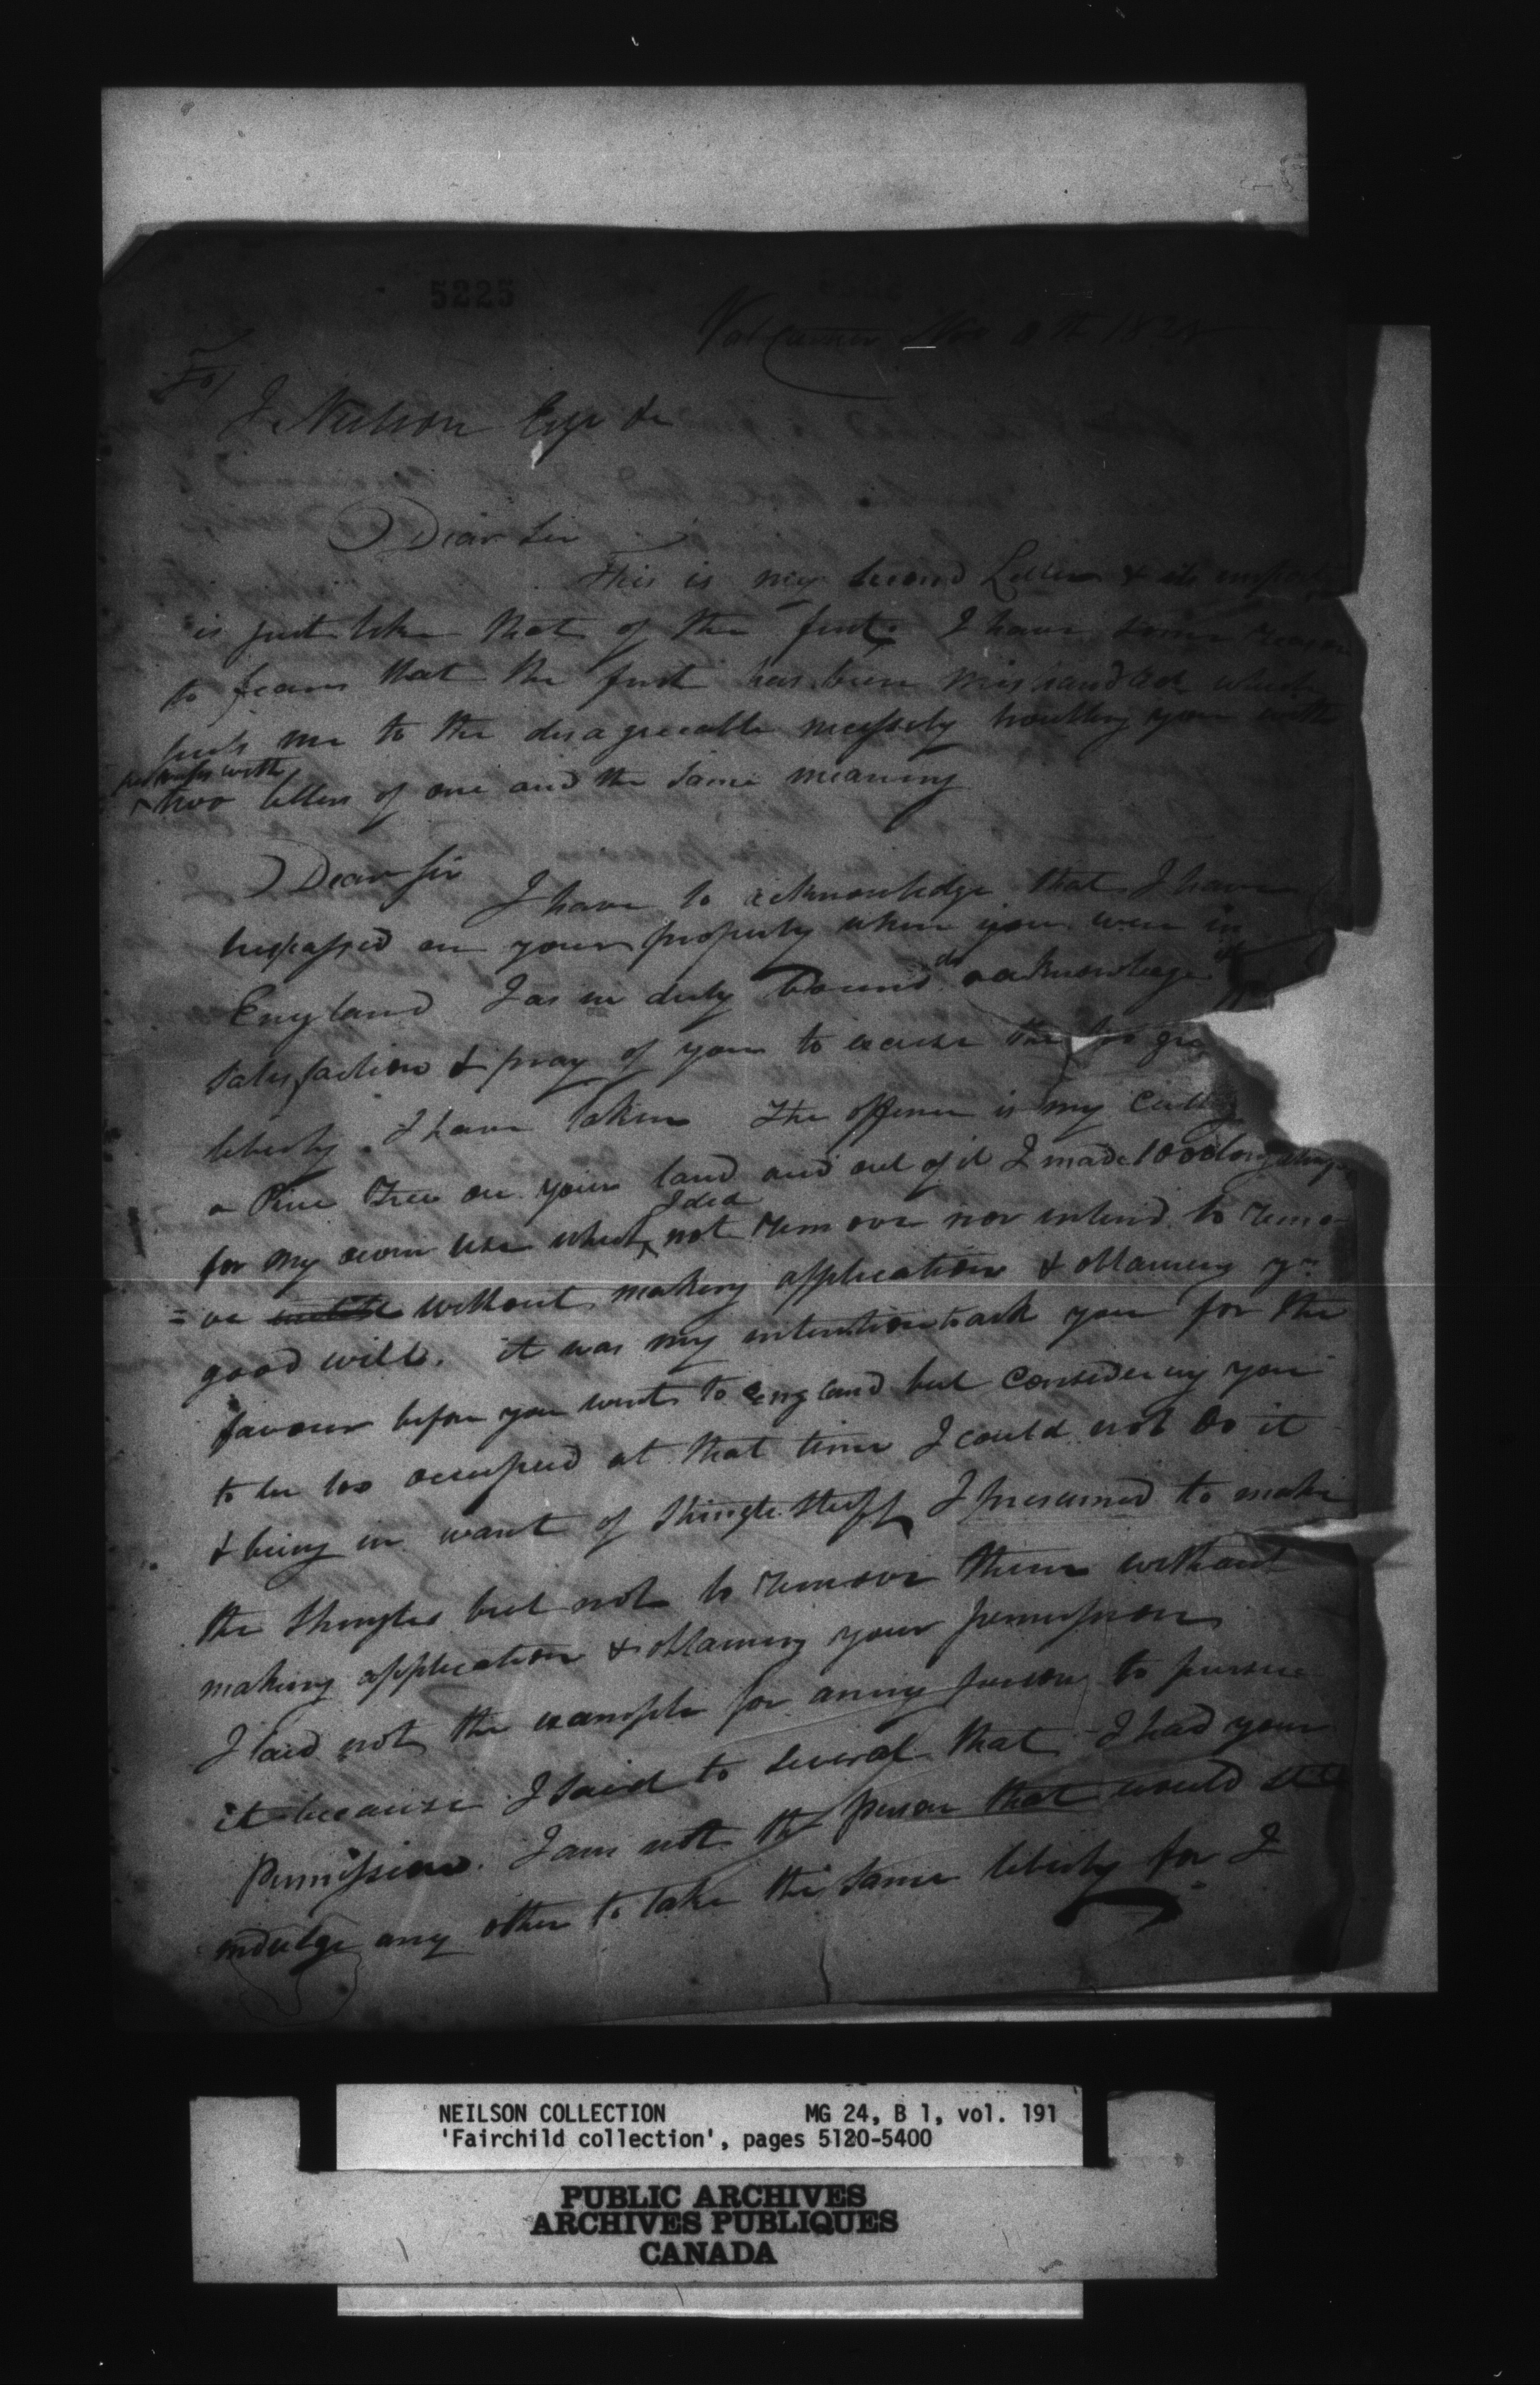 5225
Valcartier Nov 8th 1828
To
J. Neilson Esqr &c
Dear Sir
This is my second Letter & its import
is just like that of the first. I have some reason
to fear that the first has been mishandled which
puts me to the disagreeable necessity troubling you with
perhaps with
two letters of one and the same meaning
Dear Sir
I have to acknowledge that I have
trespassed on your property when you were in
England I as in duty bound do acknowledge
satisfaction & pray of you to excuse the
liberty I have taken The offence is my
a Pine Tree on your land and out of it I made 1000 long
I did
for my own use which not remove nor intend to remo-
=ve without making application & obtaining yr
good will. it was my intention to ask you for the
favour before you went to England but considering you
to be too occupied at that time I could not do it
& being in want of Shingle Stuff I presumed to make
the Shingles but not to remove them without
making application & obtaining your permission
I laid not the example for anny person to pursue
it because I said to several that I had your
Permission. I am not the person that would
indulge any other to take the same liberty for I
NEILSON COLLECTION MG 24, B 1, vol. 191
'Fairchild collection', pages 5120-5400
PUBLIC ARCHIVES
ARCHIVES PUBLIQUES
CANADA